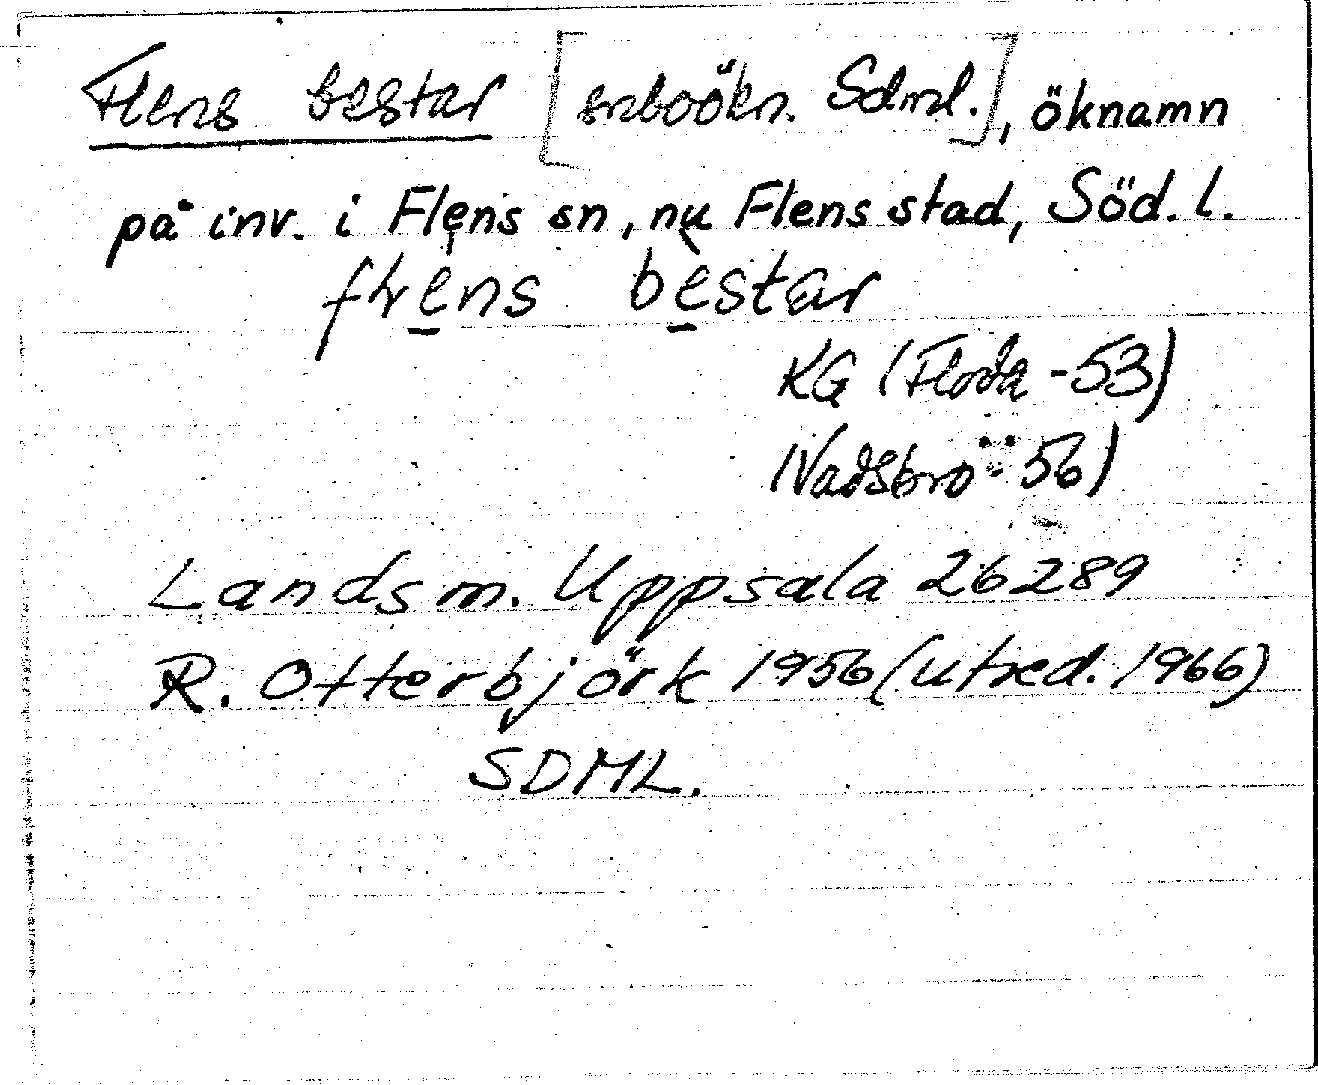 Flens bestar [snboökn. Sdml.], öknamn
på inv. i Flens sn, nu Flens stad, Söd. l.
bestar
KG (Floda -53)
(Vadsbro " 56)
Landsm. Uppsala 26289
R. Otterbjörk 1956 (utred. 1966)
SDML.